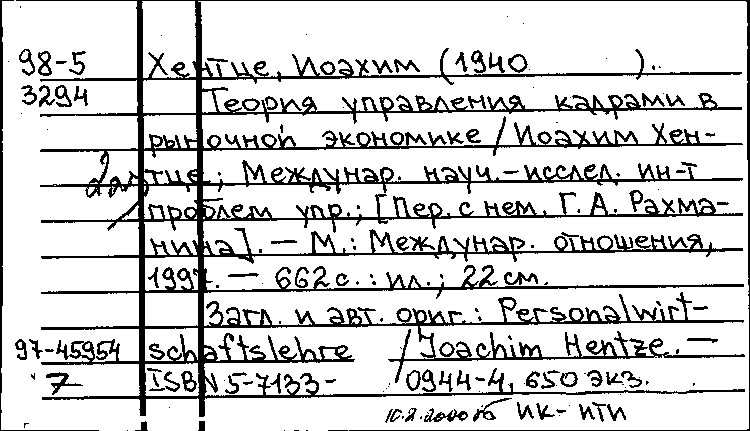 98-5 Хентце, Иоахим (1940 ).
3294 Теория управления кадрами в
рыночной экономике / Иоахим Хен-
тце; Междунар. науч.-исслед. ин-т
проблем упр.; [Пер. с нем. Г. А. Рахма-
нина]. — М.: Междунар. отношения,
1997. — 662 с. : ил.; 22 см.
Загл. и авт. ориг.: Personalwirt-
97-45954 schaftslehre / Joachim Hentze. —
7 ISBN 5-7133-0944-4, 650 экз.
10.2.2000 ИК- ИТИ